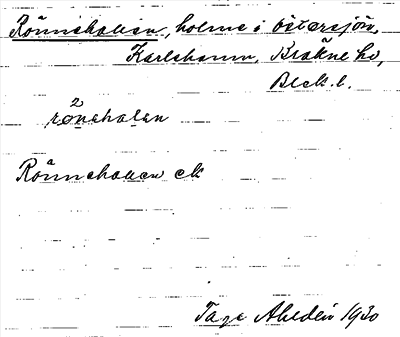 Rönnehallen, holme i Östersjön,
Karlshamn, Bräkne hd,
Blek. l.
2
rönehalan
Rönnehallen ek
Tage Ahldén 1930